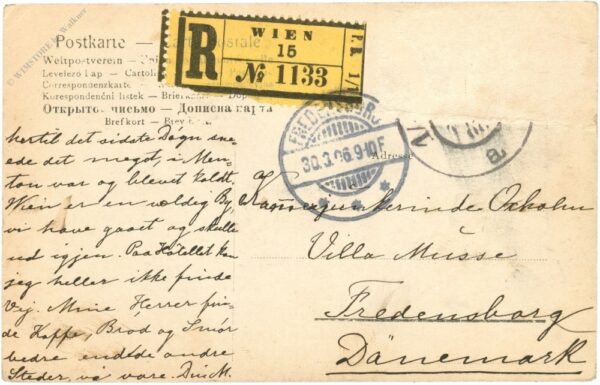 © WIMSTORE K. Walkner
Postkarte — Carte postale
Weltpostverein —
Levelező
Correspondenzkarte
Korespondenční lístek —
Открытое письмо — Дописна
Brefkort —
R
WIEN
15
№ 1133
FREDENSBORG
30.3.06.9-10F
Adresse
hertil det sidste Døgn sne-
ede det meget, i Men-
ton var og blevet koldt,
Wien er en vældig By,
vi have gaaet og skulle
ud igjen. Paa Hotellet kan
jeg heller ikke finde
Vej. Mine Herrer fin-
de Kaffe, Brød og Smør
bedre end de andre
Steder, vi vare. Din M.
Kammerjunkerinde Oxholm
Villa Musse
Fredensborg
Dänemark